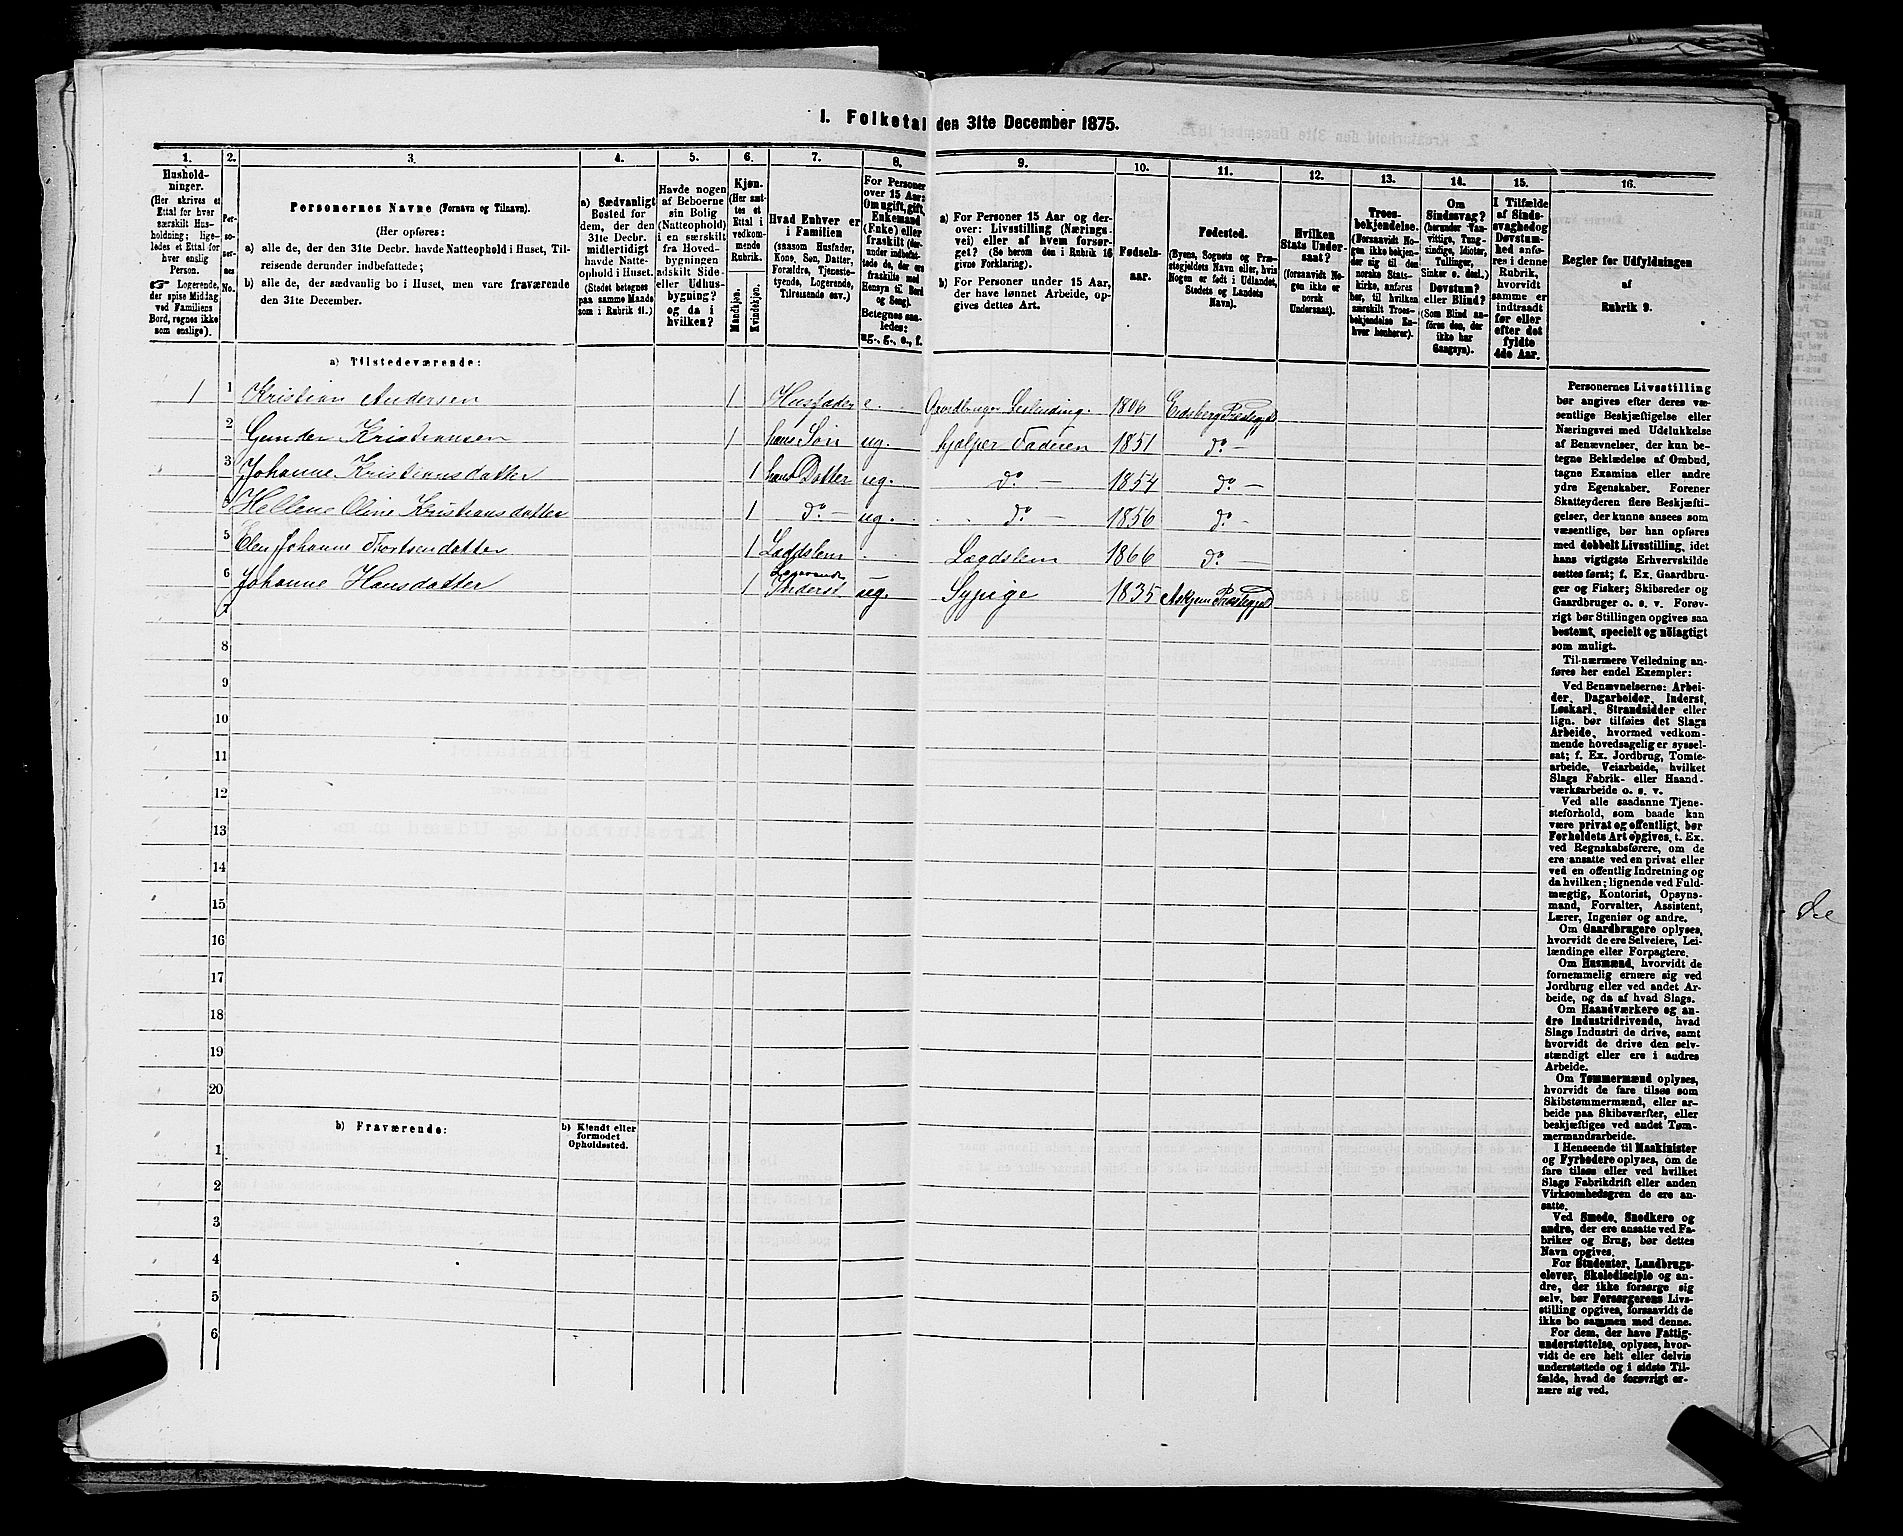 1. Folketal den 31te December 1875.
1. 2. 3. 4. 5. 6. 7. 8. 9. 10. 11. 12. 13. 14. 15. 16.
Hushold-
ninger.
(Her skrives et
Ettal for hver
særskilt Hus-
holdning; lige-
ledes et Ettal for
hver enslig
Person.
☞ Logerende,
der spise Middag
ved Familiens
Bord, regnes ikke
som enslige).
Per-
so-
ner-
nes
No.
Personernes Navne (Fornavn og Tilnavn).
(Her opføres:
a) alle de, der den 31te Decbr. havde Natteophold i Huset, Til-
reisende derunder indbefattede;
b) alle de, der sædvanlig bo i Huset, men vare fraværende
den 31te December.
a) Sædvanligt
Bosted for
dem, der den
31te Decbr.
midlertidigt
havde Natte-
ophold i Huset.
(Stedet betegnes
paa samme Maade
som i Rubrik 11.)
Havde nogen
af Beboerne
sin Bolig
(Natteophold)
i en særskilt
fra Hoved-
bygningen
adskilt Side-
eller Udhus-
bygning?
og da i
hvilken?
Kjøn.
(Her sæt-
tes et
Ettal i
vedkom-
mende
Rubrik.
Mandkjøn.
Kvindekjøn.
Hvad Enhver er
i Familien
(saasom Husfader,
Kone, Søn, Datter,
Forældre, Tjeneste-
tyende, Logerende,
Tilreisende osv.)
For Personer
over 15 Aar:
Om ugift, gift,
Enkemand
(Enke) eller
fraskilt (der-
under indbefat-
tede de, der ere
fraskilte med
Hensyn til Bord
og Seng).
Betegnes saa-
ledes:
ug., g., e., f.
a) For Personer 15 Aar og der-
over: Livsstilling (Nærings-
vei) eller af hvem forsør-
get? (Se herom den i Rubrik 16
givne Forklaring).
b) For Personer under 15 Aar,
der have lønnet Arbeide, op-
gives dettes Art.
Fødsels-
aar.
Fødested.
(Byens, Sognets og Præ-
stegjeldets Navn eller, hvis
Nogen er født i Udlandet,
Stedets og Landets
Navn).
Hvilken
Stats Under-
saat?
(forsaavidt No-
gen ikke er
norsk
Undersaat).
Troes-
bekjendelse.
(Forsaavidt No-
gen ikke bekjen-
der sig til den
norske Stats-
kirke, anføres
her, til hvilken
særskilt Troes-
bekjendelse En-
hver henhører).
Om
Sindssvag?
(herunder Van-
vittige, Tung-
sindige, Idioter,
Tullinger,
Sinker o. desl.)
Døvstum?
eller Blind?
(Som Blind an-
føres den, der
ikke har
Gangsyn).
I Tilfælde
af Sinds-
svaghed og
Døvstum-
hed anfø-
res i denne
Rubrik,
hvorvidt
samme er
indtraadt
før eller
efter det
fyldte
4de Aar.
Regler for Udfyldningen
af
Rubrik 9.
a) Tilstedeværende:
1 1 Kristian Andersen 1 Husfader e. Gaardbruger Leilending. 1806 Eidsberg Præstegjd
2 Gunder Kristiansen 1 hans Søn ug. hjælper Faderen 1851 do
3 Johanne Kristiansdatter 1 hans Datter ug. do 1854 do
4 Hellene Oline Kristiansdatter 1 do ug. do 1856 do
5 Elen Johanne Thostensdatter 1 Lægdslem Lægdslem 1866 do
6 Johanne Hansdatter 1 Logerende Inderst ug. Sypige 1835 Askjem Præstegjeld
7
8
9
10
11
12
13
14
15
16
17
18
19
20
b) Fraværende:
b) Kjendt eller
formodet
Opholdssted.
1
2
3
4
5
6
Personernes Livsstilling
bør angives efter deres væ-
sentlige Beskjæftigelse eller
Næringsvei med Udelukkelse
af Benævnelser, der kun be-
tegne Beklædelse af Ombud,
tagne Examina eller andre
ydre Egenskaber. Forener
Skatteyderen flere Beskjæfti-
gelser, der kunne ansees som
væsentlige, bør han opføres
med dobbelt Livsstilling, idet
hans vigtigste Erhvervskilde
sættes først; f. Ex. Gaardbru-
ger og Fisker; Skibsreder og
Gaardbruger o. s. v. Forøv-
rigt bør Stillingen opgives saa
bestemt, specielt og nøiagtigt
som muligt.
Til nærmere Veiledning an-
føres her endel Exempler:
Ved Benævnelserne: Arbei-
der, Dagarbeider, Inderst,
Løskarl, Strandsidder eller
lign. bør tilføies det Slags
Arbeide, hvormed vedkom-
mende hovedsagelig er syssel-
sat; f. Ex. Jordbrug, Tomte-
arbeide, Veiarbeide, hvilket
Slags Fabrik- eller Haand-
værksarbeide o. s. v.
Ved alle saadanne Tjene-
steforhold, som baade kan
være privat og offentligt, bør
Forholdets Art opgives, t. Ex.
ved Regnskabsførere, om de
ere ansatte ved en privat eller
ved en offentlig Indretning og
da hvilken; lignende ved Fuld-
mægtig, Kontorist, Opsyns-
mand, Forvalter, Assistent,
Lærer, Ingeniør og andre.
Om Gaardbrugere oplyses,
hvorvidt de ere Selveiere, Lei-
lændinge eller Forpagtere.
Om Husmænd, hvorvidt de
fornemmelig ernære sig ved
Jordbrug eller ved andet Ar-
beide, og da af hvad Slags.
Om Haandværkere og an-
dre Industridrivende, hvad
Slags Industri de drive, samt
hvorvidt de drive den selv-
stændigt eller ere i andres
Arbeide.
Om Tømmermænd oplyses,
hvorvidt de fare tilsøs som
Skibstømmermænd, eller ar-
beide paa Skibsværfter, eller
beskjæftiges ved andet Tøm-
mermandsarbeide.
I Henseende til Maskinister
og Fyrbødere oplyses, om de
fare tilsøs eller ved hvilket
Slags Fabrikdrift eller anden
Virksomhedsgren de ere an-
satte.
Ved Smede, Snedkere og
andre, der ere ansatte ved Fa-
briker og Brug, bør dettes
Navn opgives.
For Studenter, Landbrugs-
elever, Skoledisciple og an-
dre, der ikke forsørge sig
selv, bør Forsørgerens Livs-
stilling opgives, forsaavidt de
ikke bo sammen med denne.
For dem, der have Fattig-
understøttelse, oplyses, hvor-
vidt de ere helt eller delvis
understøttede og i sidste Til-
fælde, hvad de forøvrigt er-
nære sig ved.